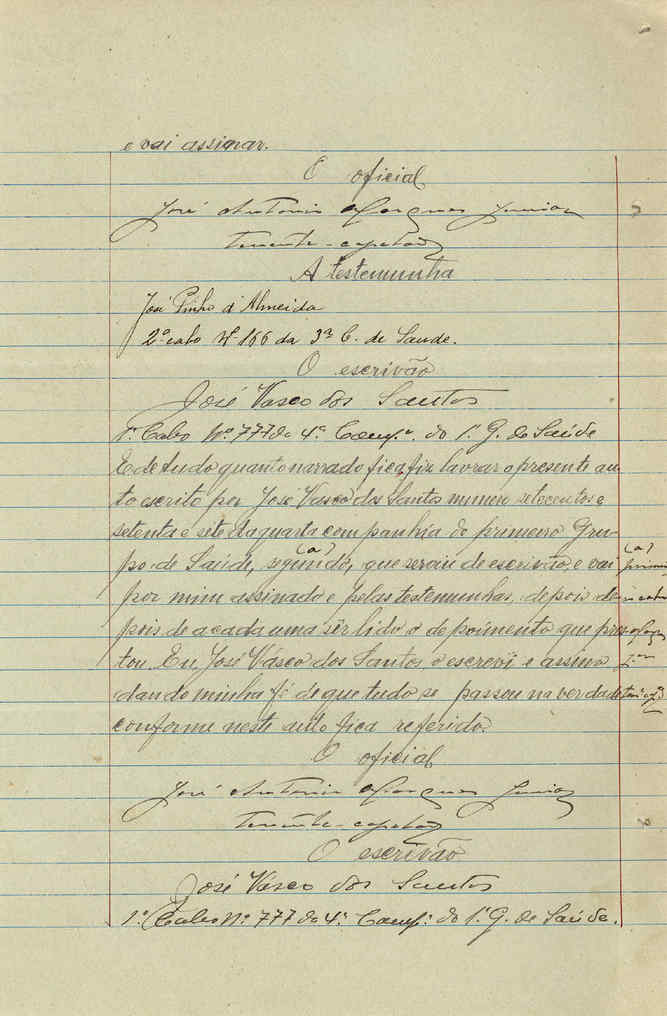 e vai assinar.
O oficial
José Antonio Marques Junior
tenente-capelão
A testemunha
José Pinho d'Almeida
2º cabo Nº 166 da 3ª C. de Saude.
O escrivão
José Vasco dos Santos
1º Cabo Nº 777 da 4ª Comp.ª do 1º G. de Saúde
E de tudo quanto narrado fica, fiz lavrar o presente au-
to escrito por José Vasco dos Santos numero setecentos e
setenta e sete da quarta companhia do primeiro Gru-
po de Saúde, segundo, (a) que serviu de escrivão, e vai
por mim assinado e pelas testemunhas, depois de
pois de a cada uma ser lido o depoimento que pres-
tou. Eu, José Vasco dos Santos o escrevi e assino
dando minha fé de que tudo se passou na verdade
conforme neste auto fica referido.
(a)
primei-
ro cabo
O oficial
José Antonio Marques Junior
tenente-capelão
O escrivão
José Vasco dos Santos
1º Cabo Nº 777 da 4ª Comp.ª do 1º G. de Saúde.